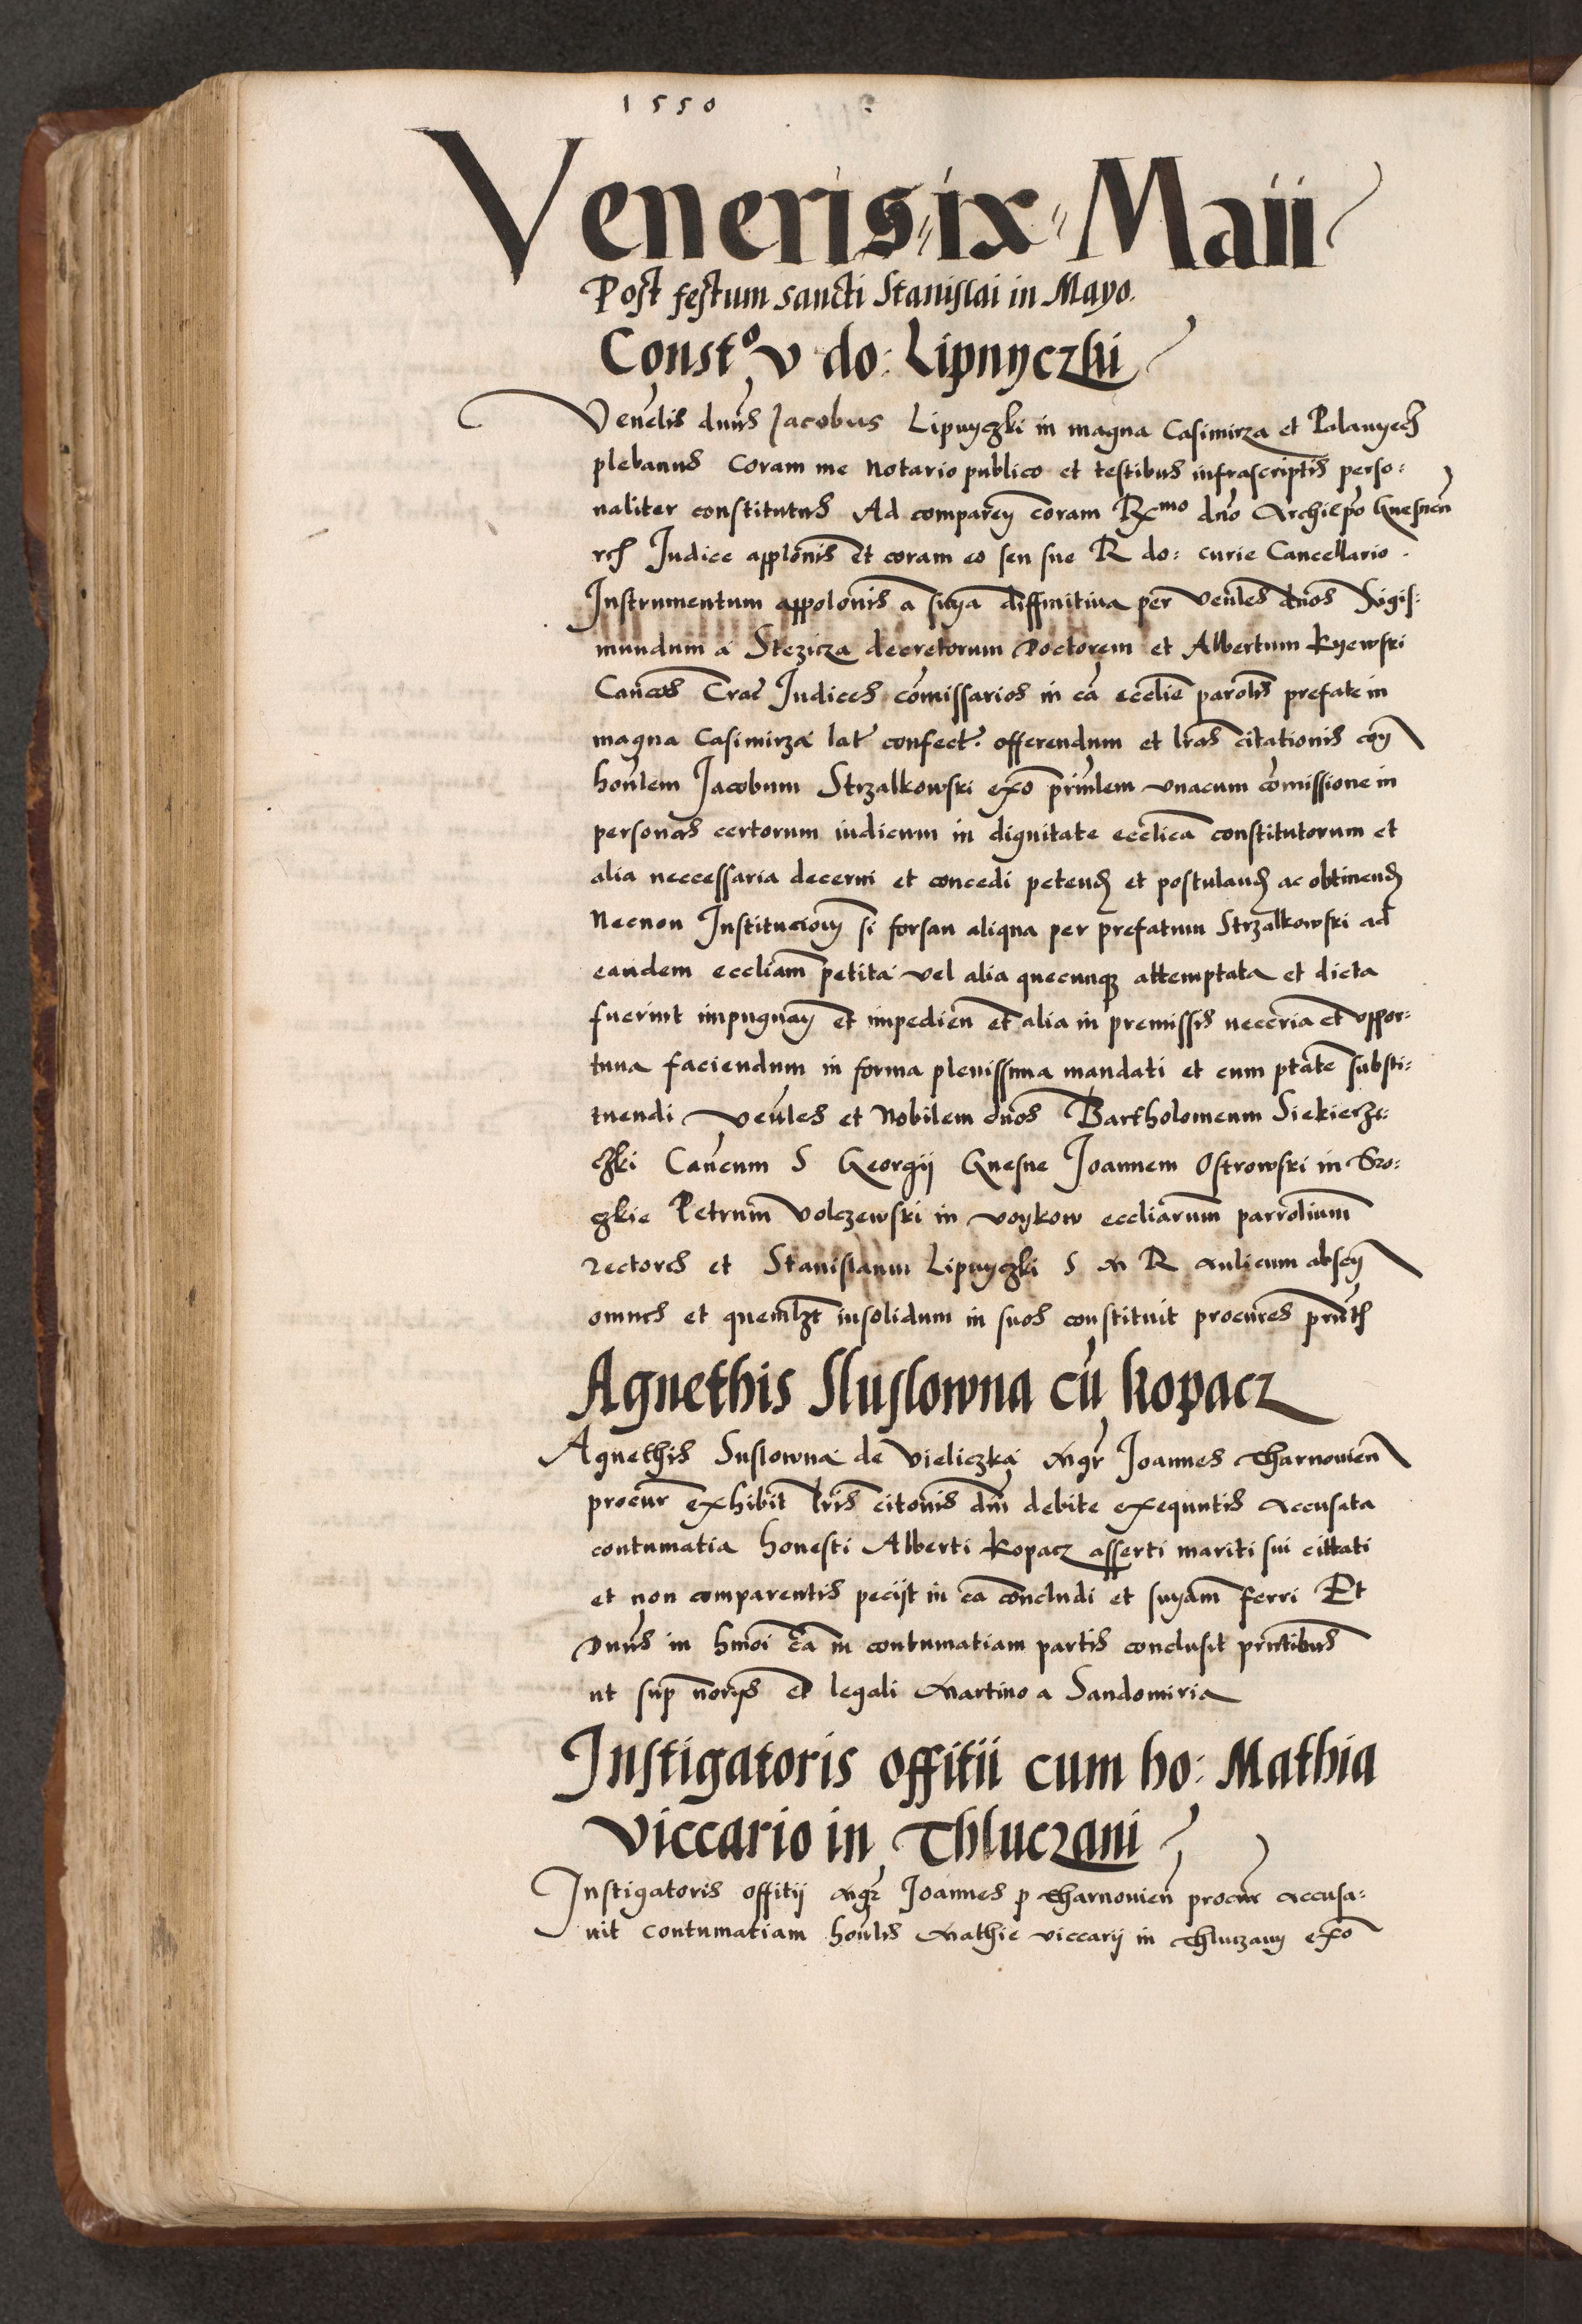 1550
Veneris ix Maii
Post festum sancti Stanislai in Mayo.
Const⁰ v do: Lipnyczki
Venelis dnus Jacobus Lipnyczki in magna Casimirza et Palanyecz
plebanus Coram me Notario publico et testibus infrascriptis perso:
naliter constitutus Ad comparen coram Rmo dno Archiepo Gnesnen
Judice applonis et coram eo seu sue R do: curie Cancellario.
Instrumentum appolonis a snia diffinitiva per venles dnos Xigis:
mundum a Stezicza decretorum doctorem et Albertum Kyewski
Cancos Crac Judices comissarios in ca ecclie parolis prefate in
magna Casimirza lat confect. offerendum et lras citationis con
honlem Jacobum Strzalkowski exo prinlem unacum comissione in
personas certorum iudicum in dignitate ecclica constitutorum et
alia neccessaria decerni et concedi petend et postuland ac obtinend
Necnon Institucion si forsan aliqua per prefatum Strzalkowski ad
eandem eccliam petita vel alia quecunq attemptata et dicta
fuerint impugnan et impedien et alia in premissis necceria et oppor:
tuna faciendum in forma plenissima mandati et cum ptate substi:
tuendi venles et Nobilem dnos Bartholomeum Siekierze:
czki Cancum S Georgii Gnesne Joannem Ostrowski in Gro:
czkie Petrum Volczewski in Voykow eccliarum parrolium
rectores et Stanislaum Lipnyczki S M R Aulicum absen
omnes et quemlzt insolidum in suos constituit procures prntt
Agnethis Sluslowna cu kopacz
Agnethis Suslowna de Vieliczka Mgr Joannes Tharnovien
procur exhibit lris citonis dni debite exequutis accusata
contumatia honesti Alberti Kopacz asserti mariti sui cittati
et non comparentis peciit in ca concludi et sniam ferri Et
Dnus in hmoi ca in contumatiam partis conclusit prntibus
ut sup norys et legali Martino a Sandomiria
Instigatoris offitii cum ho: Mathia
Viccario in Thluczani
Instigatoris offitij Mgr Joannes p Tharnovien procur accusa:
vit contumatiam honlis Mathie viccarij in Thluczany exo